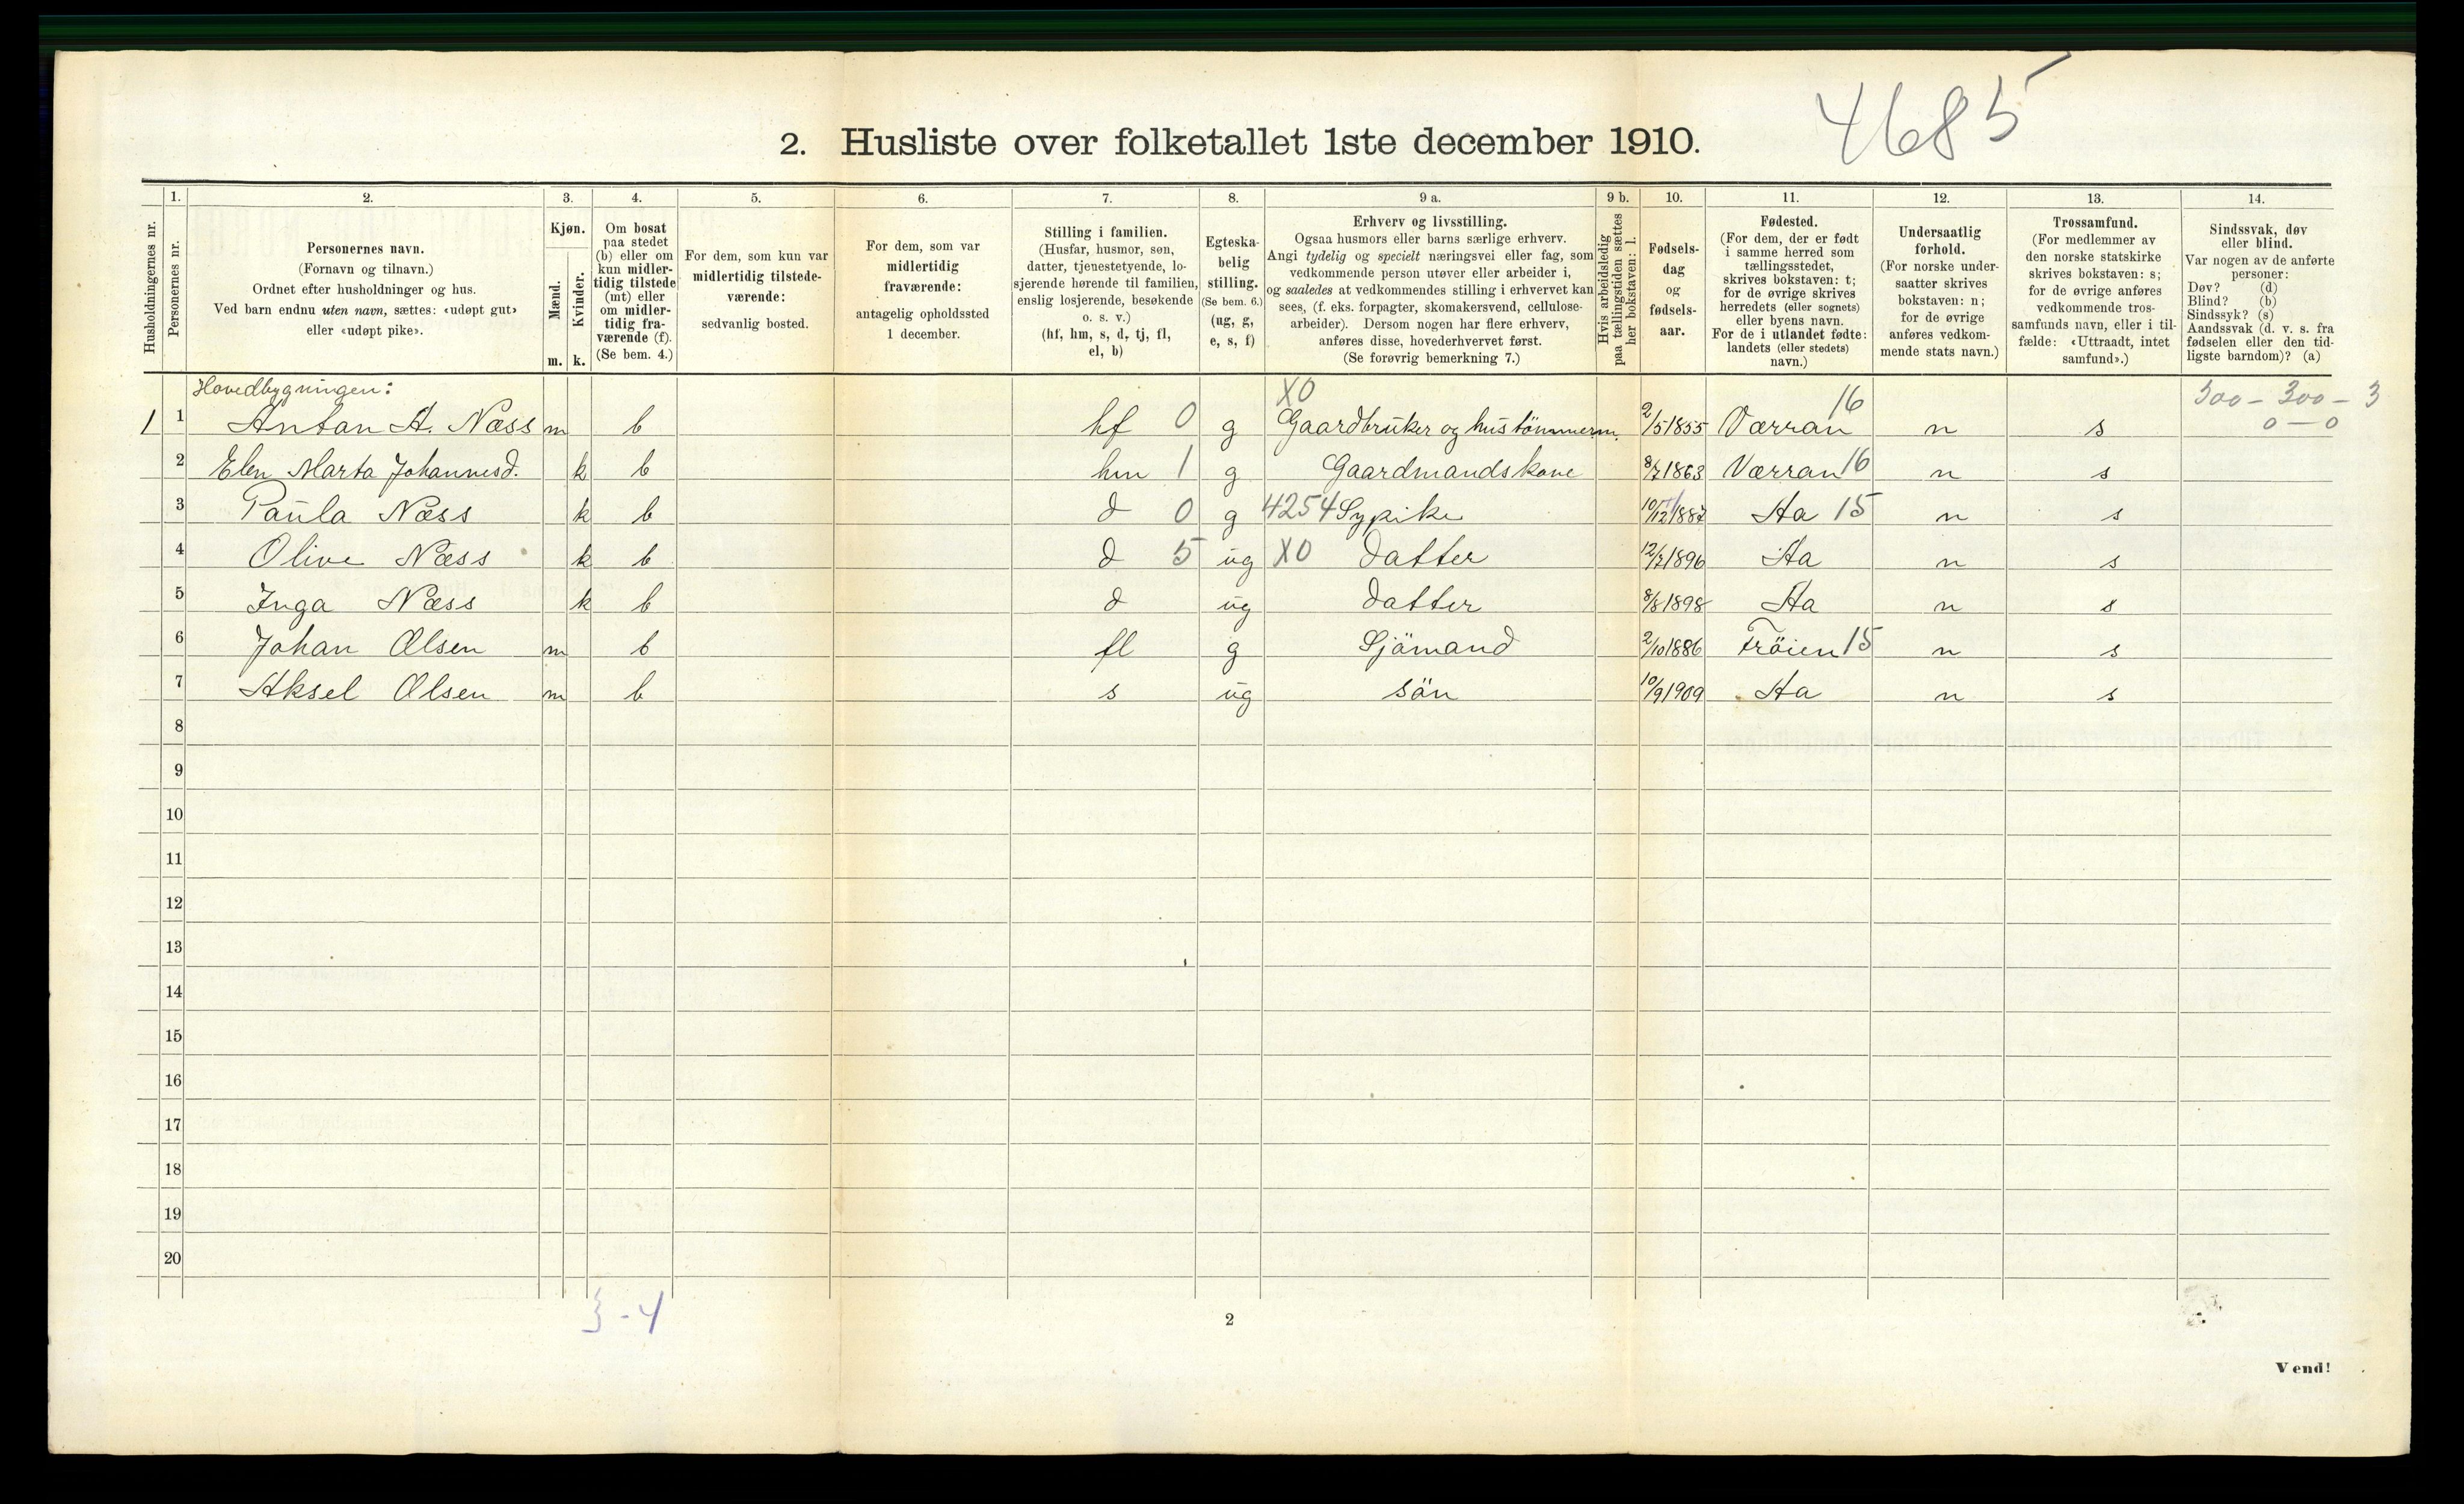 4685
2. Husliste over folketallet 1ste december 1910.
Husholdningernes nr.
1.
Personernes nr.
2.
Personernes navn.
(Fornavn og tilnavn.)
Ordnet efter husholdninger og hus.
Ved barn endnu uten navn, sættes: «udøpt gut»
eller «udøpt pike».
3.
Kjøn.
Mænd.
m.
Kvinder.
k.
4.
Om bosat
paa stedet
(b) eller om
kun midler-
tidig tilstede
(mt) eller
om midler-
tidig fra-
værende (f).
(Se bem. 4.)
5.
For dem, som kun var
midlertidig tilstede-
værende:
sedvanlig bosted.
6.
For dem, som var
midlertidig
fraværende:
antagelig opholdssted
1 december.
7.
Stilling i familien.
(Husfar, husmor, søn,
datter, tjenestetyende, lo-
sjerende hørende til familien,
enslig losjerende, besøkende
o. s. v.)
(hf, hm, s, d, tj, fl,
el, b)
8.
Egteska-
belig
stilling.
(Se bem. 6.)
(ug, g,
e, s, f)
9 a.
Erhverv og livsstilling.
Ogsaa husmors eller barns særlige erhverv.
Angi tydelig og specielt næringsvei eller fag, som
vedkommende person utøver eller arbeider i,
og saaledes at vedkommendes stilling i erhvervet kan
sees, (f. eks. forpagter, skomakersvend, cellulose-
arbeider). Dersom nogen har flere erhverv,
anføres disse, hovederhvervet først.
(Se forøvrig bemerkning 7.)
9 b.
Hvis arbeidsledig
paa tællingstiden sættes
her bokstaven: l.
10.
Fødsels-
dag
og
fødsels-
aar.
11.
Fødested.
(For dem, der er født
i samme herred som
tællingsstedet,
skrives bokstaven: t;
for de øvrige skrives
herredets (eller sognets)
eller byens navn.
For de i utlandet fødte:
landets (eller stedets)
navn.)
12.
Undersaatlig
forhold.
(For norske under-
saatter skrives
bokstaven: n;
for de øvrige
anføres vedkom-
mende stats navn.)
13.
Trossamfund.
(For medlemmer av
den norske statskirke
skrives bokstaven: s;
for de øvrige anføres
vedkommende tros-
samfunds navn, eller i til-
fælde: «Uttraadt, intet
samfund».)
14.
Sindssvak, døv
eller blind.
Var nogen av de anførte
personer:
Døv? (d)
Blind? (b)
Sindssyk? (s)
Aandssvak (d. v. s. fra
fødselen eller den tid-
ligste barndom)? (a)
Hovedbygningen: X0 16 300 - 300 - 3
1 1 Antan A. Næss m b hf 0 g Gaardbruker og hustömmerm. 2/5 1855 Værran n s 0 - 0
2 Elen Marta Johannesd. k b hm 1 g Gaardmandskone 8/7 1863 Værran 16 n s
3 Paula Næss k b d 0 g 4254 Sypike 10/12 1887 Aa 15 n s
4 Olive Næss k b d 5 ug X0 datter 12/7 1896 Aa n s
5 Inga Næss k b d ug datter 8/8 1898 Aa n s
6 Johan Olsen m b fl g Sjömand 2/10 1886 Fröien 15 n s
7 Aksel Olsen m b s ug sön 10/9 1909 Aa n s
8
9
10
11
12
13
14
15
16
17
18
19
20
3 - 4
2
Vend!